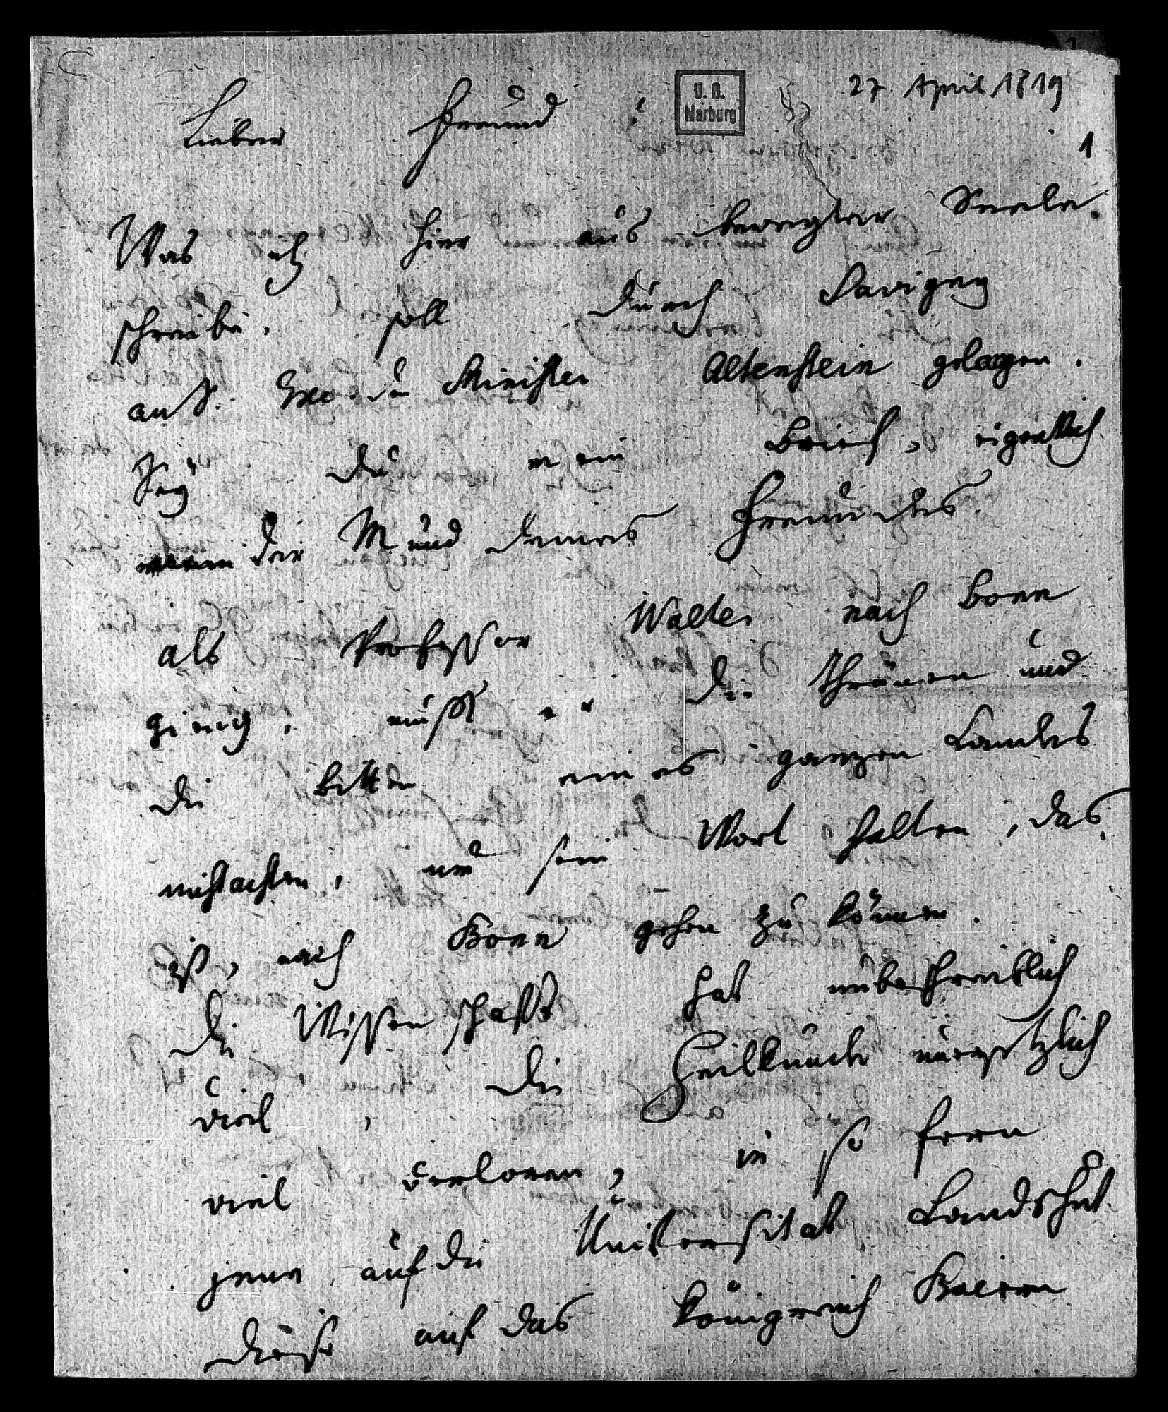 27 April 1819
U. B.
Marburg
1
Lieber Freund!
Was ich hier aus bewegter Seele
schreibe, soll durch Savigny
an S. Exc. den Minister Altenstein gelangen.
Sey Du mein Brief, eigentlich
der Mund deines Freundes.
als Professor Walter nach Bonn
ging, mußte er die Thränen und
die Bitten eines ganzen Landes
mißachten, um sein Wort halten, das
ist, nach Bonn gehen zu können.
Die Wissenschaft hat unbeschreiblich
viel, die Heilkunde unersetzlich
viel verloren, in so fern
jene auf die Universitat Landshut
diese auf das Königreich Baiern